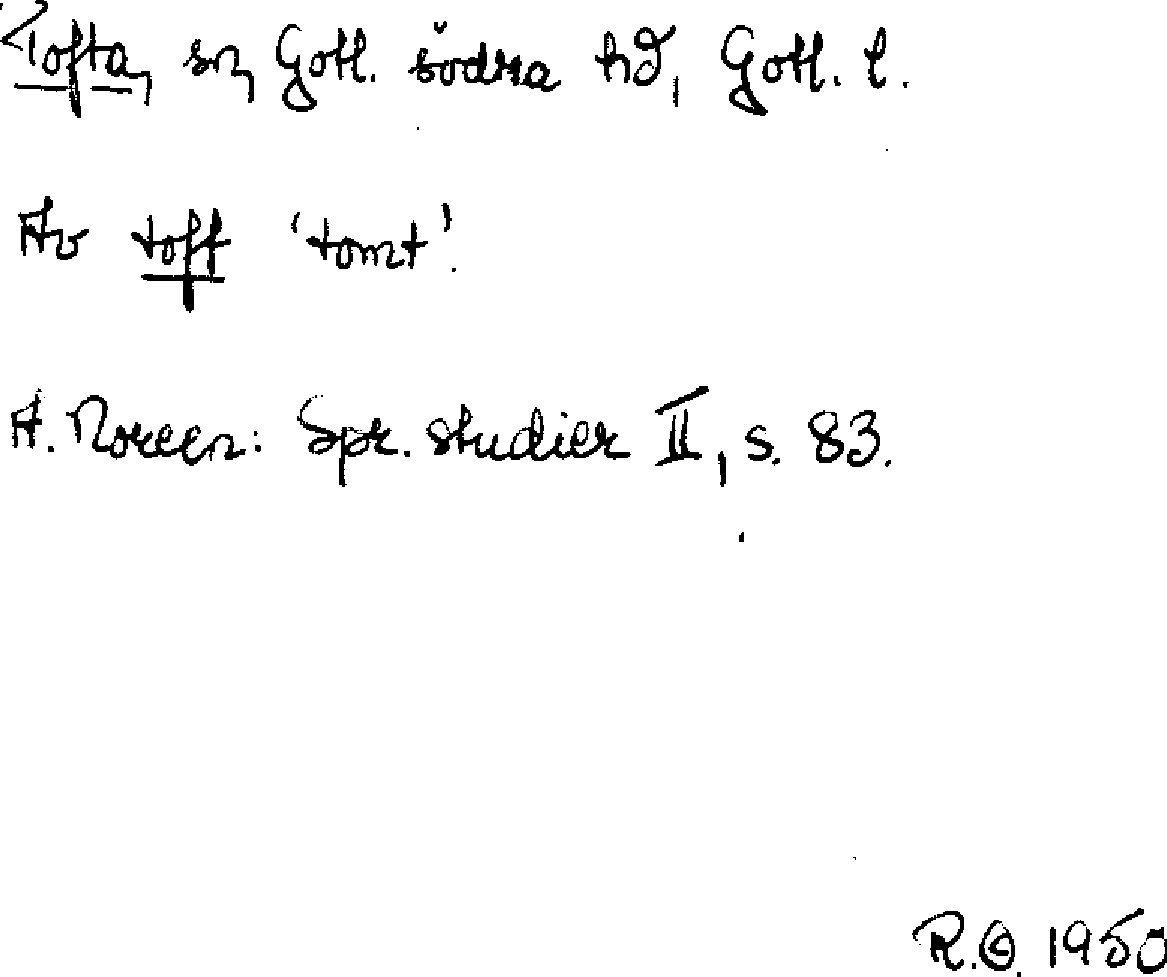 Tofta, sn, Gotl. södra hd, Gotl. l.
Av toft 'tomt'.
A. Noreen: Spr. studier II, s. 83.
R.G. 1950